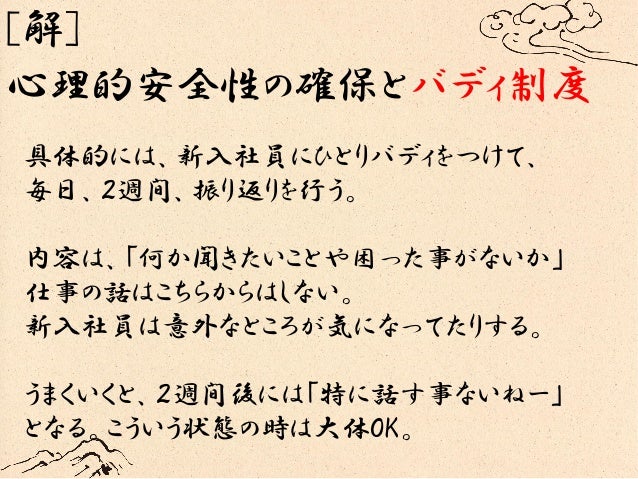 [解]
心理的安全性の確保とバディ制度
具体的には、新入社員にひとりバディをつけて、
毎日、2週間、振り返りを行う。
内容は、「何か聞きたいことや困った事がないか」
仕事の話はこちらからはしない。
新入社員は意外なところが気になってたりする。
うまくいくと、2週間後には「特に話す事ないねー」
となる。こういう状態の時は大体OK。